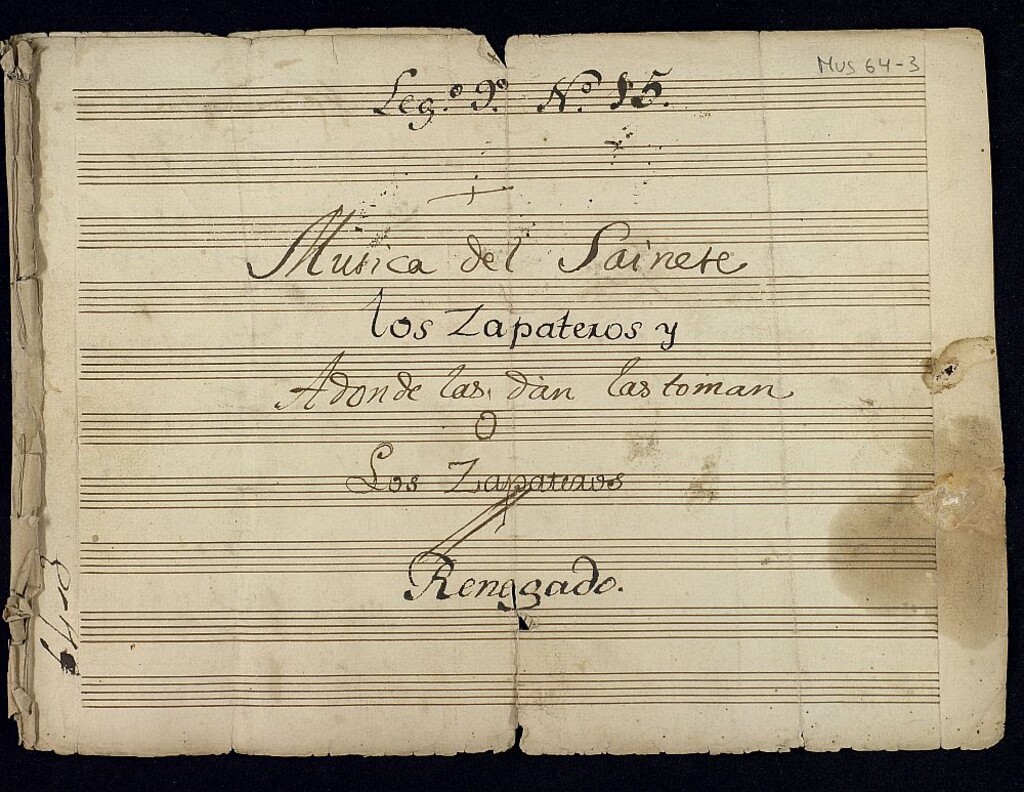 Mus 64-3
Leg.º 9.º N.º 15.
Musica del Sainete
los Zapateros y
Adonde las dàn las toman
O
Los Zapateros
Renegado.